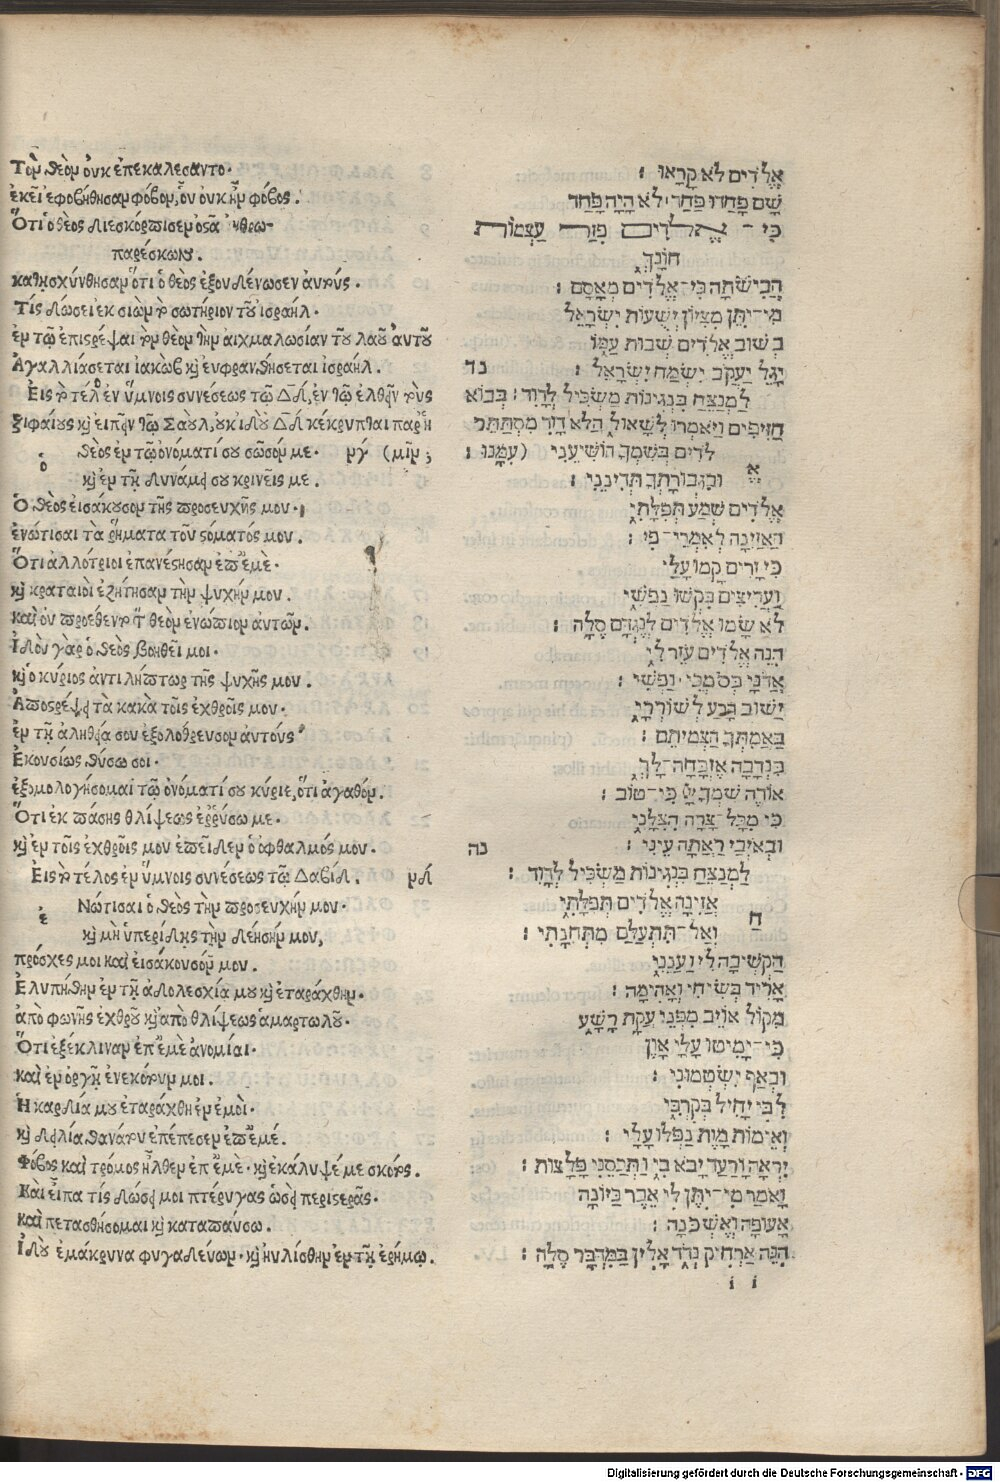 Τὸν θεὸν οὐκ ἐπεκαλέσαντο.
ἐκεῖ ἐφοβήθησαν φόβον, οὗ οὐκ ἦν φόβος.
Ὅτι ὁ θεὸς διεσκόρπισεν ὀστᾶ ἀνθρω-
παρέσκων.
κατῃσχύνθησαν ὅτι ὁ θεὸς ἐξουδένωσεν αὐτούς.
Τίς δώσει ἐκ σιὼν τὸ σωτήριον τοῦ ισραήλ.
ἐν τῷ ἐπιστρέψαι τὸν θεὸν τὴν αἰχμαλωσίαν τοῦ λαοῦ αὐτοῦ
Ἀγαλλιάσεται ἰακὼβ καὶ ἐυφρανθήσεται ἰσραήλ.
Εις τὸ τέλος ἐν ὕμνοις συνέσεως τῷ Δαδ, ἐν τῷ ἐλθεῖν τοὺς
ξιφαίους καὶ εἰπεῖν τῷ Σαούλ, οὐκ ιδοὺ Δαδ κέκρυπται παρ ἡ
Ο θεὸς ἐν τῷ ὀνόματί σου σῶσόν με. ργ (μῖν;
καὶ ἐν τῇ δυνάμει σου κρινεῖς με.
Ὁ θεὸς εἰσάκουσον τῆς προσευχῆς μου.
ἐνώτισαι τὰ ῥήματα τοῦ στόματός μου.
Ὅτι ἀλλότριοι ἐπανέστησαν ἐπ ἐμὲ.
καὶ κραταιοὶ ἐζήτησαν τὴν ψυχήν μου.
καὶ ὀυ προέθεντο τὸν θεὸν ἐνώπιον ἀυτῶν.
Ἰδὸυ γὰρ ὁ θεὸς βοηθεῖ μοι.
καὶ ὁ κύριος ἀντιλήπτωρ τῆς ψυχῆς μου.
Ἀποστρέψει τὰ κακὰ τοῖς ἐχθροῖς μου.
ἐν τῇ ἀληθείᾳ σου ἐξολόθρευσον ἀυτούς
Ἑκουσίως θύσω σοι.
ἐξομολογήσομαι τῷ ὀνόματί σου κύριε, ὅτι ἀγαθόν.
Ὅτι ἐκ πάσης θλίψεως ἐῤῥύσω με.
καὶ ἐν τοῖς ἐχθροῖς μου ἐπεῖδεν ὁ ὀφθαλμός μου.
Εἰς τὸ τέλος ἐν ὕμνοις συνέσεως τῷ Δαβίδ. ρδ
Ενώτισαι ὁ θεὸς τὴν προσευχήν μου.
καὶ μὴ ὑπερίδῃς τὴν δέησήν μου,
πρόσχες μοι καὶ εἰσάκουσόν μου.
Ἐλυπήθην ἐν τῇ ἀδολεσχίᾳ μου καὶ ἐταράχθην.
ἀπὸ φωνῆς ἐχθροῦ καὶ ἀπὸ θλίψεως ἁμαρτωλοῦ.
Ὅτι ἐξέκλιναν ἐπ ἐμὲ ἀνομίαι.
καὶ ἐν ὀργῇ ἐνεκότουν μοι.
Ἡ καρδία μου ἐταράχθη ἐν ἐμοί.
καὶ δειλία θανάτου ἐπέπεσεν ἐπ ἐμέ.
Φόβος καὶ τρόμος ἦλθεν ἐπ ἐμὲ. καὶ ἐκάλυψέ με σκότος.
Καὶ εἶπα τίς δώσει μοι πτέρυγας ὡσεὶ περιστερᾶς.
καὶ πετασθήσομαι καὶ καταπαύσω.
Ἰδοὺ ἐμάκρυνα φυγαδεύων. καὶ ἠυλίσθην ἐν τῇ ἐρήμῳ.
אֱלֹדִים לֹא קָרָאוּ :
שָׁם פָּחֲדוּ פַּחַד לֹא הָיָה פָּחַד
כִּי־אֱלֹדִים פִּזַּר עַצְמוֹת
חוֹנָךְ
הֱבִישֹׁתָה כִּי־אֱלֹדִים מְאָסָם :
מִי־יִתֵּן מִצִּיּוֹן יְשֻׁעוֹת יִשְׂרָאֵל
בְּשׁוּב אֱלֹדִים שְׁבוּת עַמּוֹ
יָגֵל יַעֲקֹב יִשְׂמַח יִשְׂרָאֵל : נד
לַמְנַצֵּחַ בִּנְגִינוֹת מַשְׂכִּיל לְדָוִד : בְּבוֹא
הַזִּיפִים וַיֹּאמְרוּ לְשָׁאוּל הֲלֹא דָוִד מִסְתַּתֵּר
אֱלֹדִים בְּשִׁמְךָ הוֹשִׁיעֵנִי (עִמָּנוּ :
וּבִגְבוּרָתְךָ תְדִינֵנִי :
אֱלֹדִים שְׁמַע תְּפִלָּתִי
הַאֲזִינָה לְאִמְרֵי־פִי :
כִּי זָרִים קָמוּ עָלַי
וְעָרִיצִים בִּקְשׁוּ נַפְשִׁי
לֹא שָׂמוּ אֱלֹדִים לְנֶגְדָּם סֶלָה :
הִנֵּה אֱלֹדִים עֹזֵר לִי
אֲדֹנָי בְּסֹמְכֵי נַפְשִׁי :
יָשׁוּב הָרַע לְשׁוֹרְרָי
בַּאֲמִתְּךָ הַצְמִיתֵם :
בִּנְדָבָה אֶזְבְּחָה־לָּךְ
אוֹדֶה שִׁמְךָ יְיָ כִּי־טוֹב :
כִּי מִכָּל־צָרָה הִצִּלָנִי
וּבְאֹיְבַי רָאֲתָה עֵינִי : נה
לַמְנַצֵּחַ בִּנְגִינוֹת מַשְׂכִּיל לְדָוִד :
הַאֲזִינָה אֱלֹדִים תְּפִלָּתִי
וְאַל־תִּתְעַלַּם מִתְּחִנָּתִי :
הַקְשִׁיבָה לִּי וַעֲנֵנִי
אָרִיד בְּשִׂיחִי וְאָהִימָה :
מִקּוֹל אוֹיֵב מִפְּנֵי עָקַת רָשָׁע
כִּי־יָמִיטוּ עָלַי אָוֶן
וּבְאַף יִשְׂטְמוּנִי :
לִבִּי יָחִיל בְּקִרְבִּי
וְאֵימוֹת מָוֶת נָפְלוּ עָלָי :
יִרְאָה וָרַעַד יָבֹא בִי וַתְּכַסֵּנִי פַּלָּצוּת :
וָאֹמַר מִי־יִתֶּן לִּי אֵבֶר כַּיּוֹנָה
אָעוּפָה וְאֶשְׁכֹּנָה :
הִנֵּה אַרְחִיק נְדֹד אָלִין בַּמִּדְבָּר סֶלָה :
i i
Digitalisierung gefördert durch die Deutsche Forschungsgemeinschaft - DFG